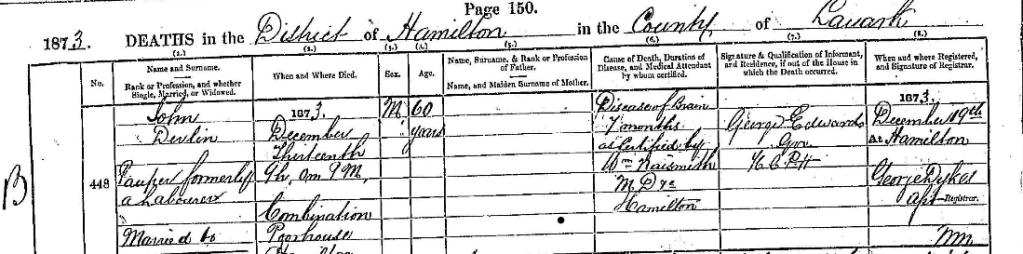 Page 150.
1873. DEATHS in the District of Hamilton in the County of Lanark
(1.) (2.) (3.) (4.) (5.) (6.) (7.) (8.)
No.
Name and Surname.
Rank or Profession, and whether
Single, Married, or Widowed.
When and Where Died.
Sex.
Age.
Name, Surname, & Rank or Profession
of Father.
Name, and Maiden Surname of Mother.
Cause of Death, Duration of
Disease, and Medical Attendant
by whom certified.
Signature & Qualification of Informant,
and Residence, if out of the House in
which the Death occurred.
When and where Registered,
and Signature of Registrar.
B
448
John
Devlin
Pauper formerly
a Labourer
Married to
1873.
December
Thirteenth
9h. 0m. P.M.
Combination
Poorhouse
M
60
years
Disease of Brain
7 months
as Certified by
Wm Naismith
M.D.
Hamilton
George Edwards
Gov.
H.C.P.H
1873.
December 19th
At Hamilton
George Dykes
Registrar.